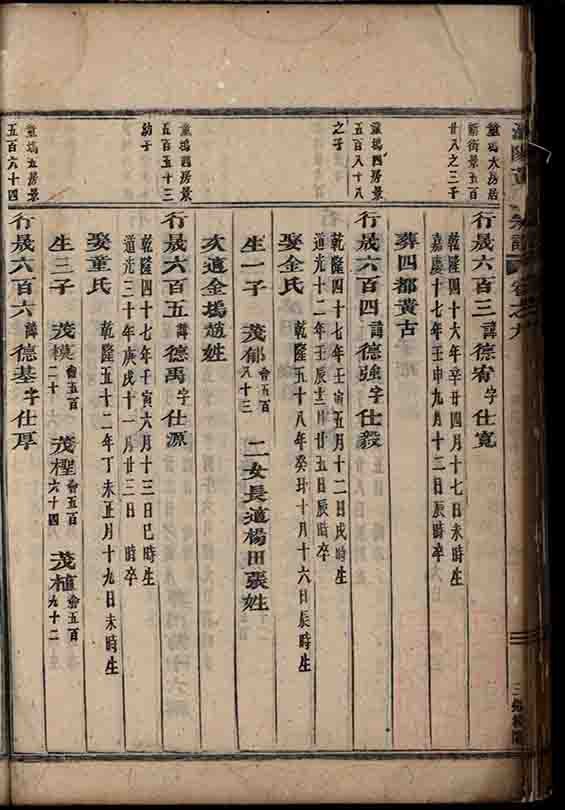 宗譜 卷之九
堂塢大房居
新街景五百
廿八之三子
行晟六百三諱德宥字仕寬
乾隆四十六年辛丑四月十七日未時生
嘉慶十七年壬申九月十三日辰時卒
葬四都黃古
堂塢四房景
五百八十八
之子
行晟六百四諱德強字仕毅
乾隆四十七年壬寅五月十二日戌時生
道光十二年壬辰十二月廿五日辰時卒
娶金氏
乾隆五十八年癸丑十月十六日辰時生
生一子 茂郁會五百八十三 二女長適楊田張姓
次適金塢趙姓
堂塢四房景
五百五十三
幼子
行晟六百五諱德禹字仕源
乾隆四十七年壬寅六月十三日巳時生
道光三十年庚戌十一月廿三日 時卒
娶童氏
乾隆五十二年丁未正月十九日未時生
生三子 茂模會五百二十 茂檉會五百六十四 茂植會五百九十二
堂塢五房景
五百六十四
行晟六百六諱德基字仕厚